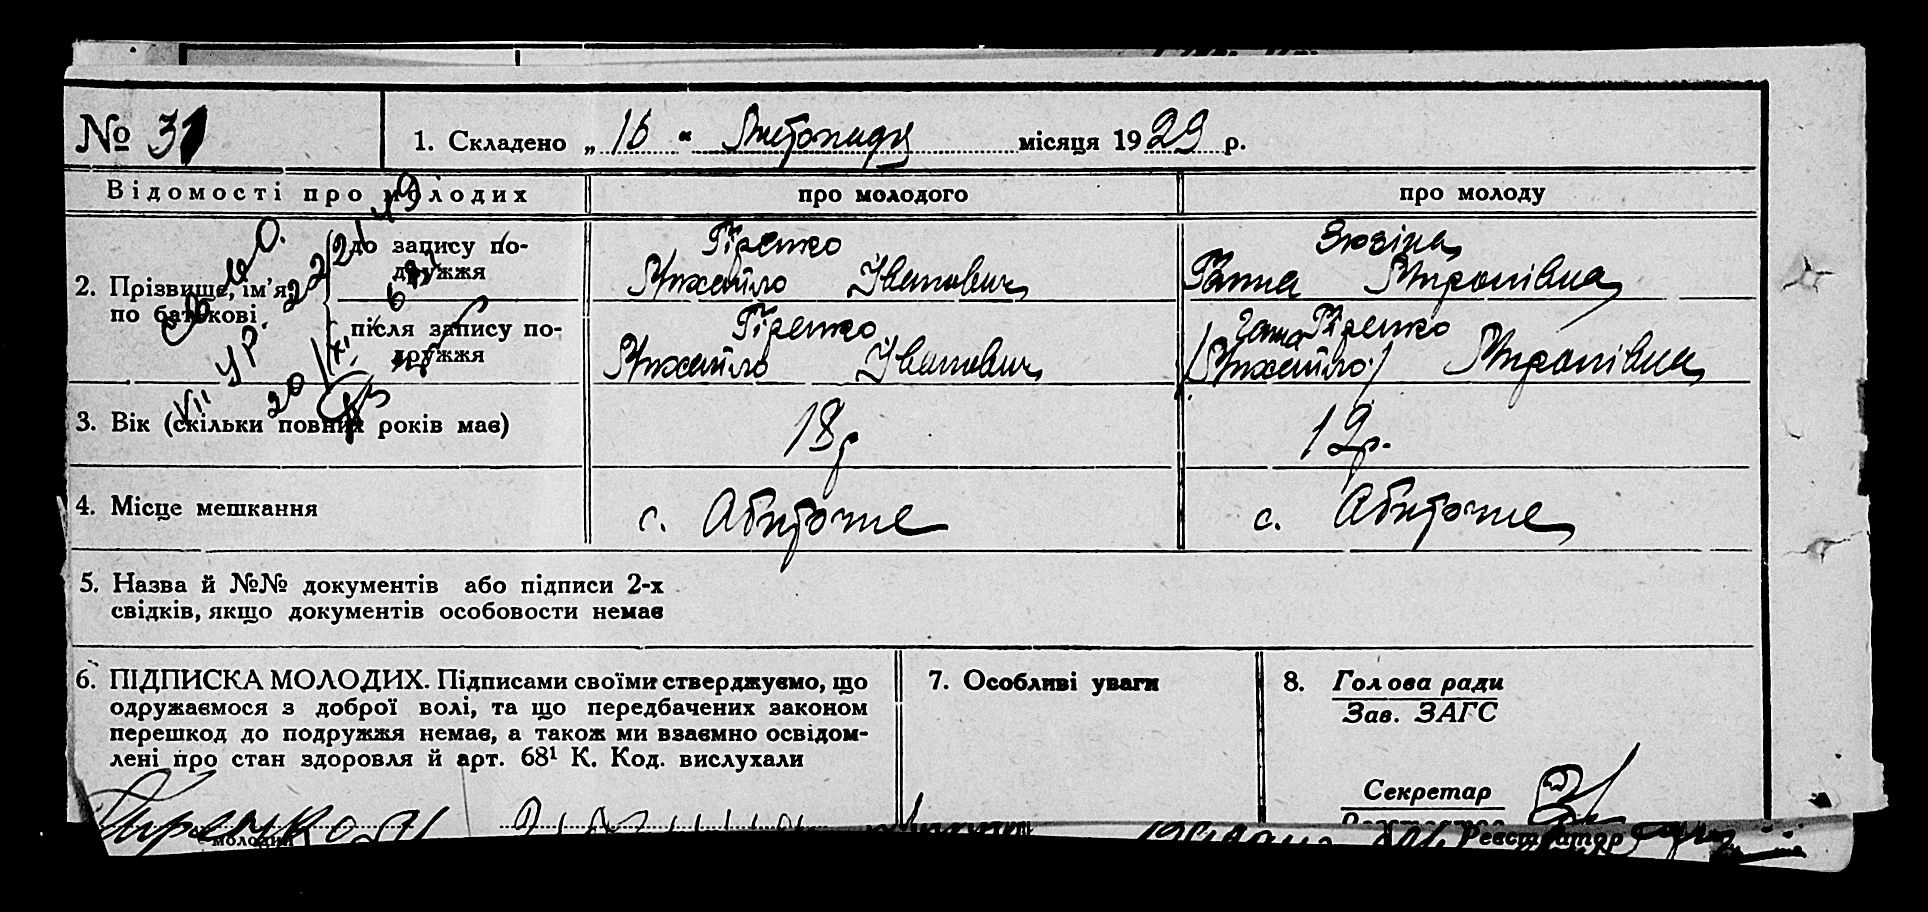 № 31
1. Складено „ 16 " Листопада місяця 1929 р.
Відомості про молодих
про молодого
про молоду
2. Прізвище, ім'я,
по батькові
до запису по-
дружжя
Гіренко
Михайло Іванович
Зюзіна
Ганна Миронівна
після запису по-
дружжя
Гіренко
Михайло Іванович
Ганна Гіренко
/Михайло/ Миронівна
3. Вік (скільки повних років має)
18 р
19 р.
4. Місце мешкання
с. Абиточне
с. Абиточне
5. Назва й №№ документів або підписи 2-х
свідків, якщо документів особовости немає
6. ПІДПИСКА МОЛОДИХ. Підписами своїми стверджуємо, що
одружаємося з доброї волі, та що передбачених законом
перешкод до подружжя немає, а також ми взаємно освідом-
лені про стан здоровля й арт. 68¹ К. Код. вислухали
7. Особливі уваги
8. Голова ради
Зав. ЗАГС
Секретар
Реєстратор
молодий